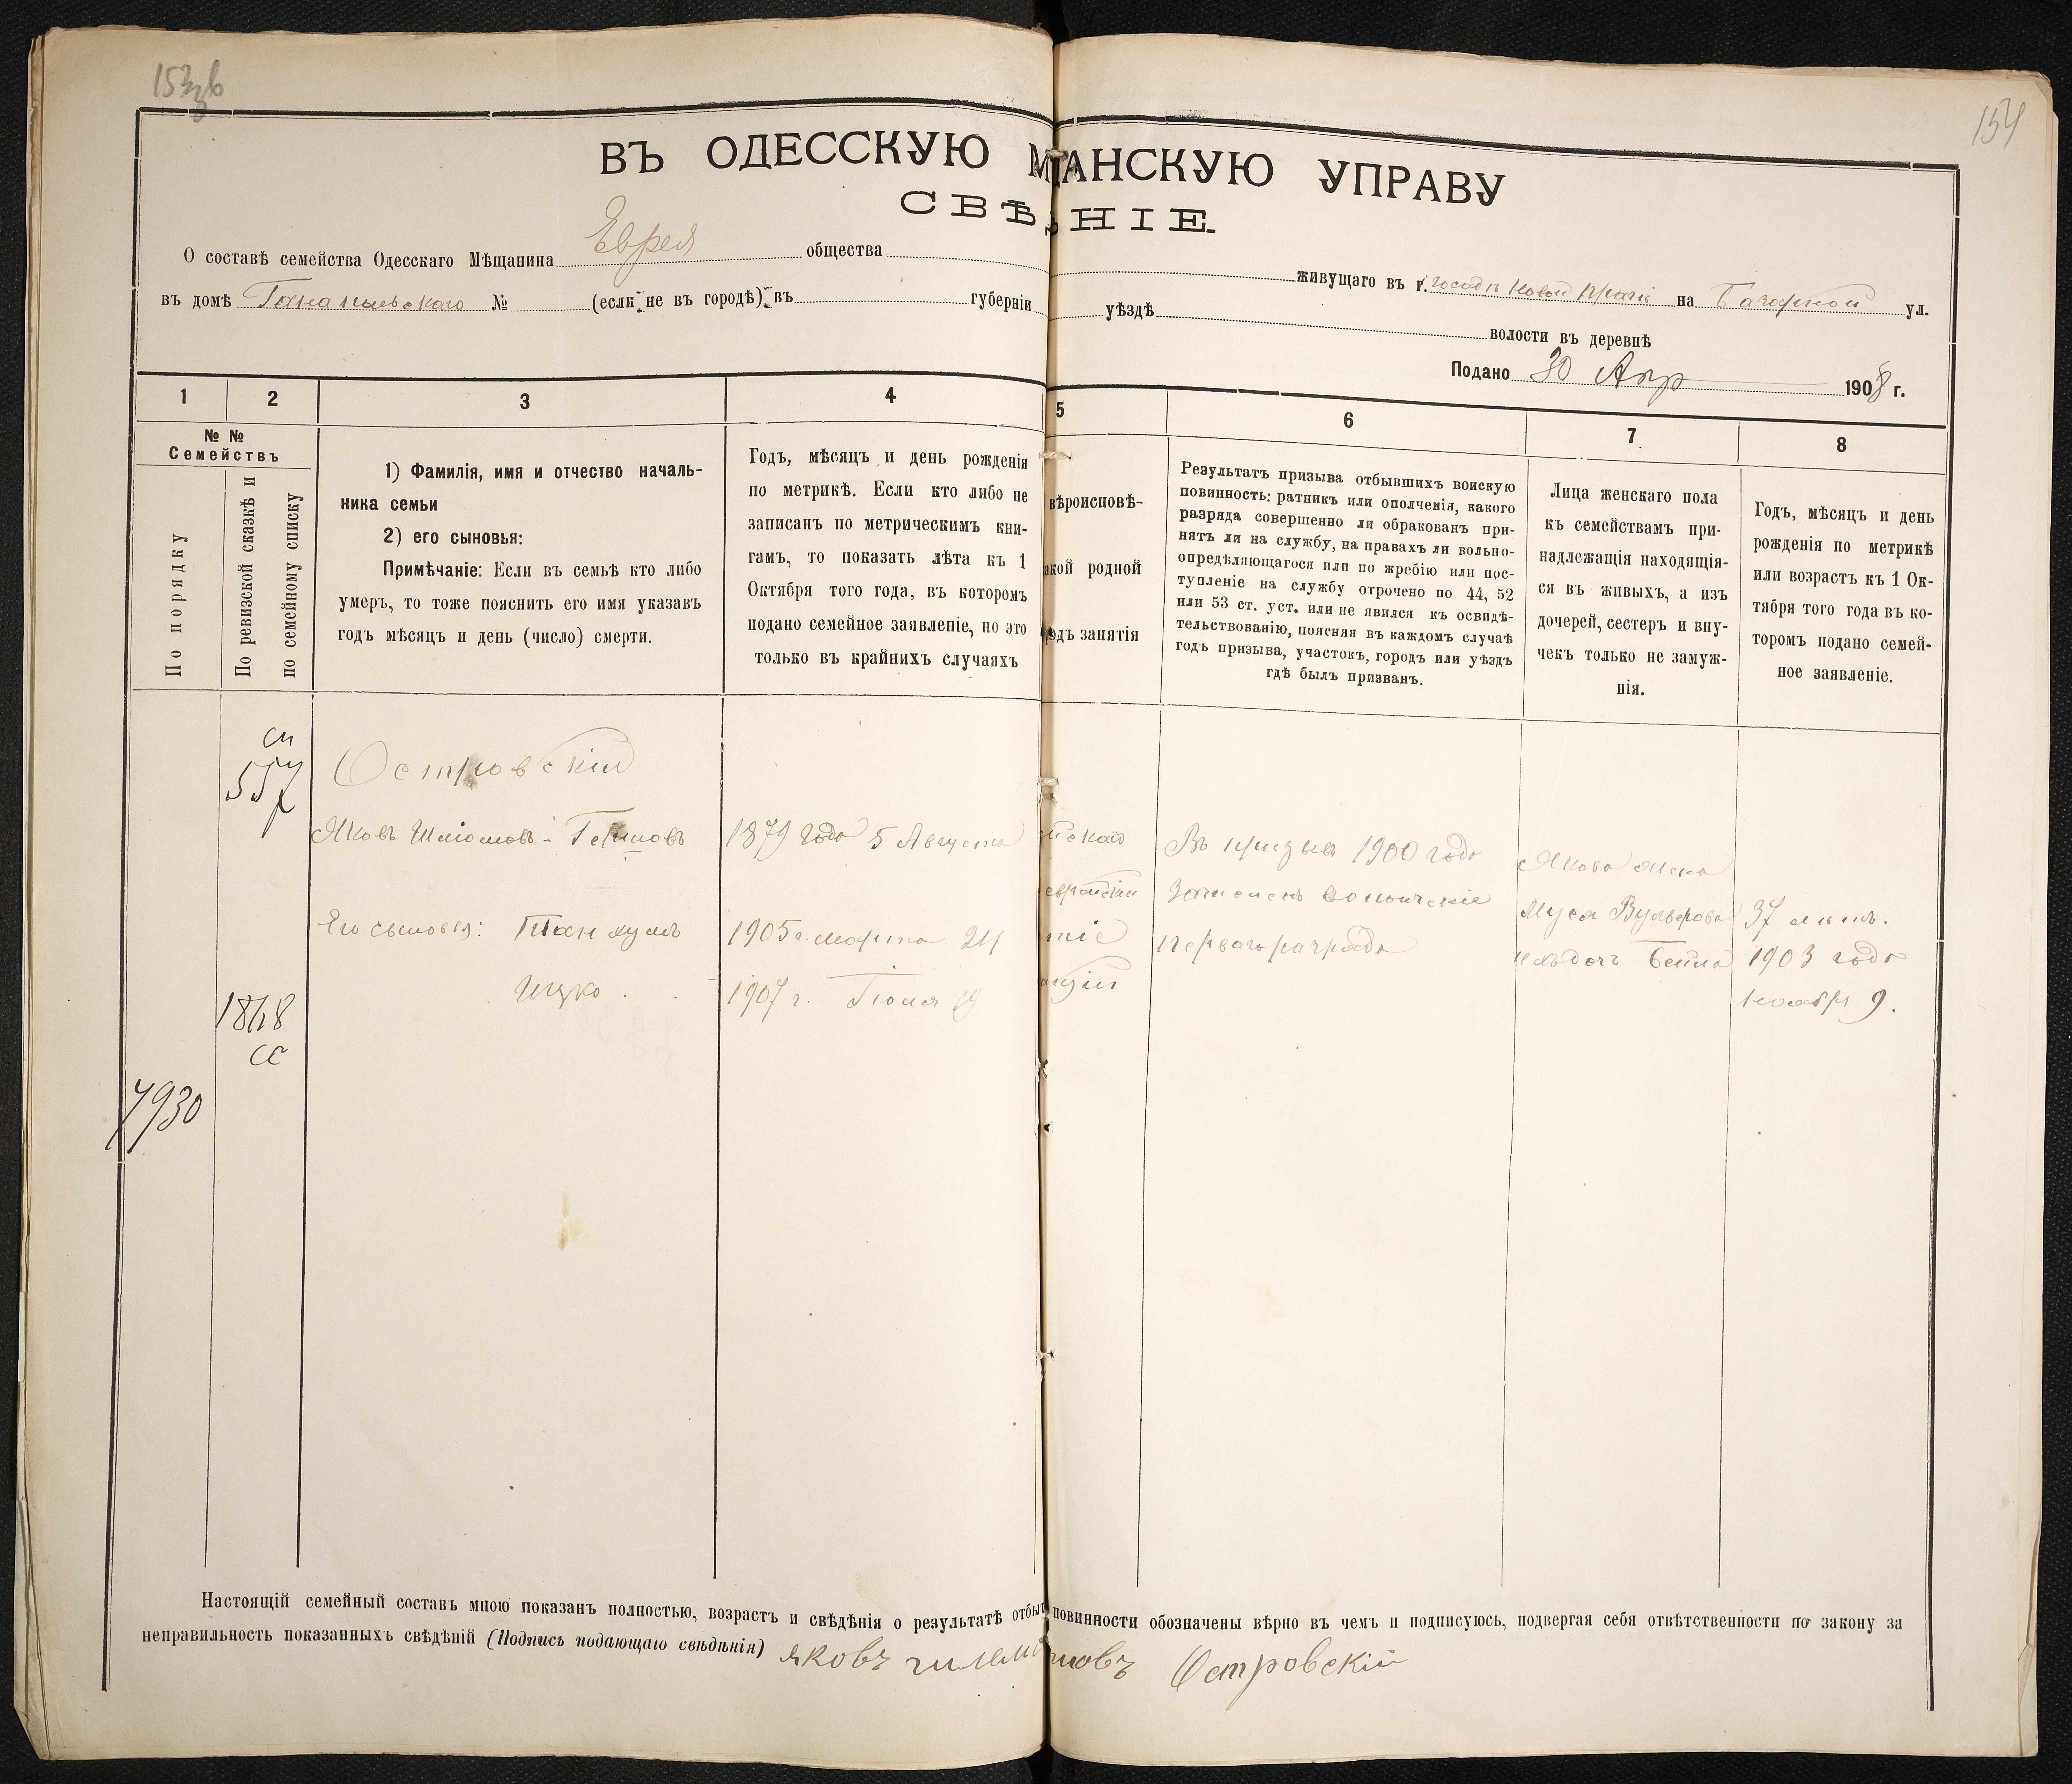 153
154
ВЪ ОДЕССКУЮ М АНСКУЮ УПРАВУ
СВѢ НІЕ.
О составѣ семейства Одесскаго Мѣщанина Еврея общества живущаго въ г. посадѣ Новой Прагѣ на Базарной ул.
въ домѣ № (если не въ городѣ) въ губерніи уѣздѣ волости въ деревнѣ
Подано 30 Апр 1908 г.
1 2 3 4 5 6 7 8
№ №
Семействъ
По порядку
По ревизской сказкѣ и
по семейному списку
1) Фамилія, имя и отчество началь-
ника семьи
2) его сыновья:
Примѣчаніе: Если въ семьѣ кто либо
умеръ, то тоже пояснить его имя указавъ
годъ мѣсяцъ и день (число) смерти.
Годъ, мѣсяцъ и день рожденія
по метрикѣ. Если кто либо не
записанъ по метрическимъ кни-
гамъ, то показать лѣта къ 1
Октября того года, въ которомъ
подано семейное заявленіе, но это
только въ крайнихъ случаяхъ
вѣроисповѣ-
акой родной
одъ занятія
Результатъ призыва отбывшихъ воискую
повинность: ратникъ или ополченія, какого
разряда совершенно ли обракованъ при-
нятъ ли на службу, на правахъ ли вольно-
опредѣляющагося или по жребію или пос-
тупленіе на службу отрочено по 44, 52
или 53 ст. уст. или не явился къ освидѣ-
тельствованію, поясняя въ каждомъ случаѣ
годъ призыва, участокъ, городъ или уѣздъ
гдѣ былъ призванъ.
Лица женскаго пола
къ семействамъ при-
надлежащія находящія-
ся въ живыхъ, а изъ
дочерей, сестеръ и вну-
чекъ только не замуж-
нія.
Годъ, мѣсяцъ и день
рожденія по метрикѣ
или возрастъ къ 1 Ок-
тября того года въ ко-
торомъ подано семей-
ное заявленіе.
сп
557
1848
сс
7930
Островскій
Яковъ Шліомовъ-
1879 года 5 Августа
Его сыновья: Танхумъ
1905 г. Марта 24
Ицко
1907 г. Іюля
йскаго
еврейскій
Въ призывъ 1900 года
Зачисленъ
перваго разряда
Якова жена
Муся Вульфова
37 лѣтъ.
ихъ дочь Бейла
1903 года
ноября 9.
Настоящій семейный составъ мною показанъ полностью, возрастъ и свѣдѣнія о результатѣ отбыт повинности обозначены вѣрно въ чемъ и подписуюсь, подвергая себя отвѣтственности по закону за
неправильность показанныхъ свѣдѣній (Подпись подающаго свѣдѣнія) яковъ Островскій